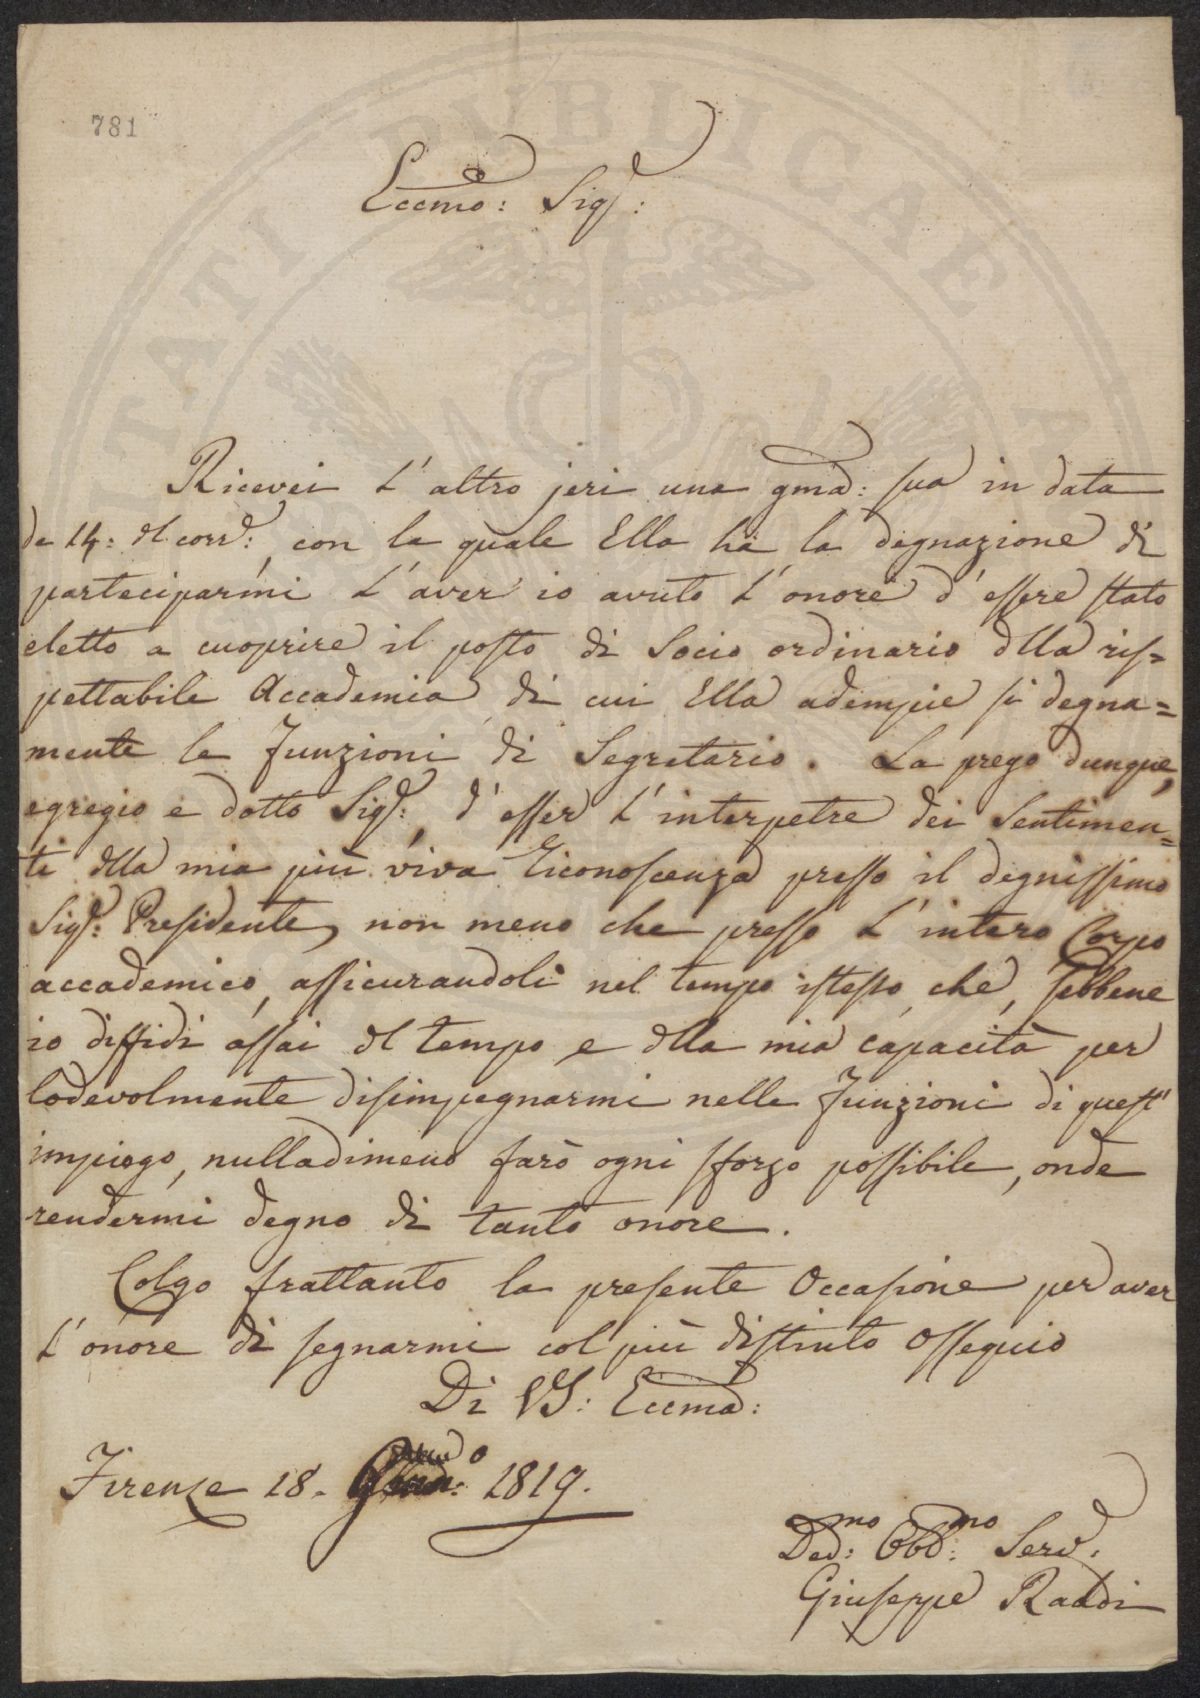 781
PUBLICAE
TATI
Eccmo: Sigr:
Ricevei l'altro jeri una gma: sua in data
de 14: del corrte: con la quale Ella ha la degnazione di
parteciparmi l'aver io avuto l'onore d'essere stato
eletto a cuoprire il posto di Socio ordinario della ris=
pettabile Accademia, di cui Ella adempie sì degna=
mente le Funzioni di Segretario. La prego dunque,
egregio e dotto Sigr:, d'esser l'interpetre dei Sentimen=
ti della mia più viva riconoscenza presso il degnissimo
Sigr: Presidente, non meno che presso l'intero Corpo
accademico, assicurandoli nel tempo istesso, che, sebbene
io diffidi assai del tempo e della mia capacità per
lodevolmente disimpegnarmi nelle Funzioni di quest'
impiego, nulladimeno farò ogni sforzo possibile, onde
rendermi degno di tanto onore.
Colgo frattanto la presente Occasione per aver
l'onore di segnarmi col più distinto Ossequio
Di VS: Eccma:
Firenze 18. 1819.
Dedmo: Obbmo: Serv.
Giuseppe Raddi